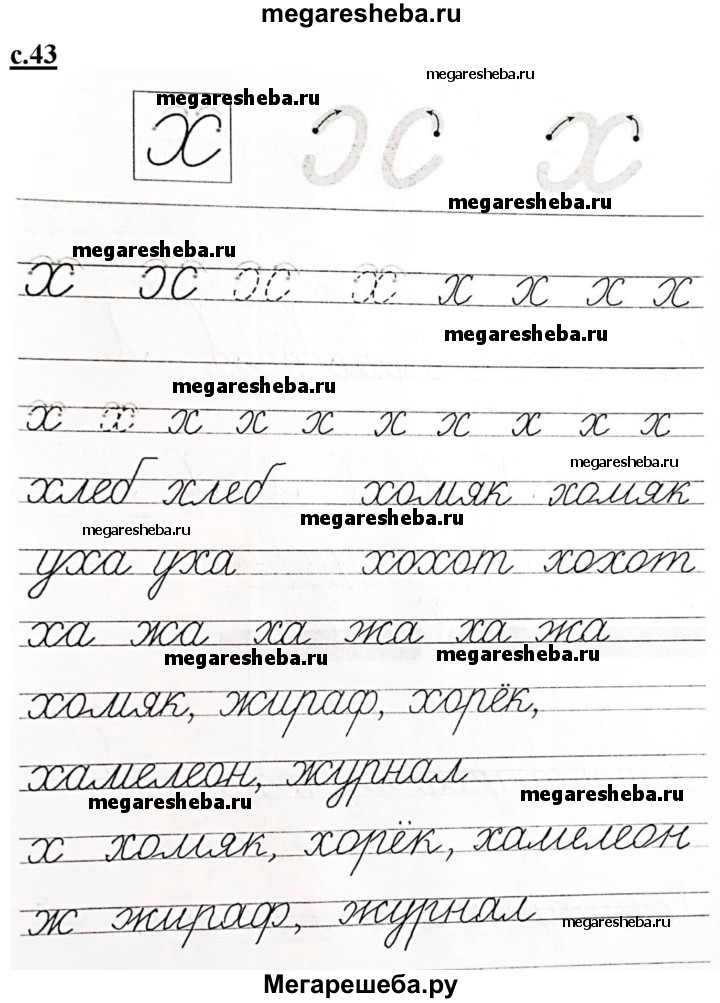 megaresheba.ru
с.43
megaresheba.ru
megaresheba.ru
х ɔ с х
megaresheba.ru
megaresheba.ru
х ɔ с ɔ с х х х х х
megaresheba.ru
megaresheba.ru
х х х х х х х х х х
megaresheba.ru
хлеб хлеб хомяк хомяк
megaresheba.ru
megaresheba.ru
уха уха хохот хохот
ха жа ха жа ха жа
megaresheba.ru megaresheba.ru
хомяк, жираф, хорёк,
хамелеон, журнал
megaresheba.ru megaresheba.ru
х хомяк, хорёк, хамелеон
ж жираф, журнал
megaresheba.ru
Мегарешеба.ру